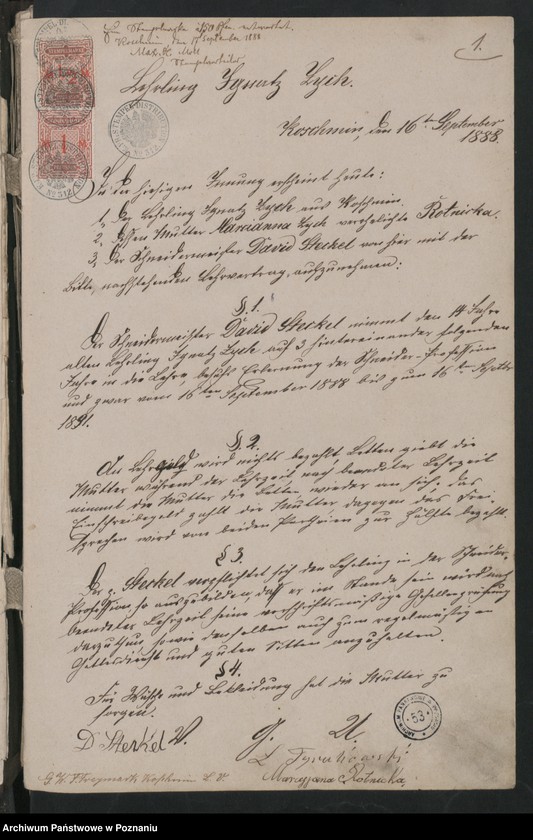 Stempelmarke
Koschmin, den 17 September 1888
1.
Lehrling Ignatz Zych.
Koschmin, den 16ten September
1888.
In der hiesigen Innung erscheint heute:
1, der Lehrling Ignatz Zych aus Koschmin.
2, dessen Mutter Marianna Zych verehelichte Rotnicka.
3, der Schneidermeister David Sterkel von hier mit der
Bitte, nachstehenden Lehrvertrag, aufzunehmen:
§. 1.
Der Schneidermeister David Sterkel nimmt den 14 Jahre
alten Lehrling Ignatz Zych auf 3 hintereinander folgenden
Jahre in die Lehre, behufs Erlernung der Schneider-Profession
und zwar vom 16ten September 1888 bis zum 16ten Septbr
1891.
§. 2.
An Lehrgeld wird nichts bezahlt, Betten giebt die
Mutter während der Lehrzeit, nach beendeter Lehrzeit
nimmt die Mutter die Betten wieder an sich, das
Einschreibegeld zahlt die Mutter dagegen das Frei-
sprechen wird von beiden Partheien zur Hälfte bezahlt.
§ 3.
Der p. Sterkel verpflichtet sich den Lehrling in der Schneider-
Profession so auszubilden, daß er im Stande sein wird nach
beendeter Lehrzeit seine vorschriftsmäßige Gesellenprüfung
darzuthun, sowie denselben auch zum regelmäßigen
Gottesdienst und guten Sitten anzuhalten.
§ 4.
Für Wäsche und Bekleidung hat die Mutter zu
sorgen.
D Sterkel V. G. U.
Maryjana Rotnicka
53
Archiwum Państwowe w Poznaniu